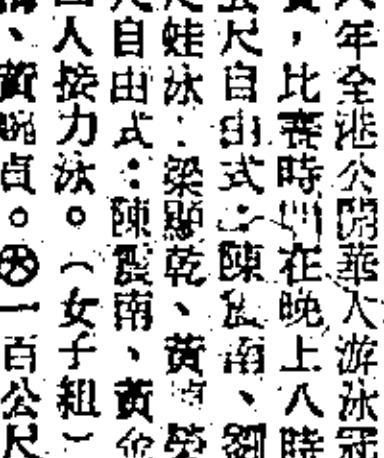 年全港公開華人游泳冠
，比賽時間在晚上八時
尺自由式：陳震南、劉
蛙泳：梁顯乾、黃榮
自由式：陳震南、黃
人接力泳。（女子組）
、黃婉貞。一百公尺